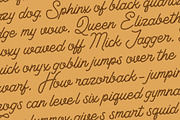 zy dog. Sphinx of black quartz
dge my vow. Queen Elizabeth
oxy waved off Mick Jagger.
uick onyx goblin jumps over the
warf. How razorback-jumpin
rogs can level six piqued gymna
lummox gives smart squid